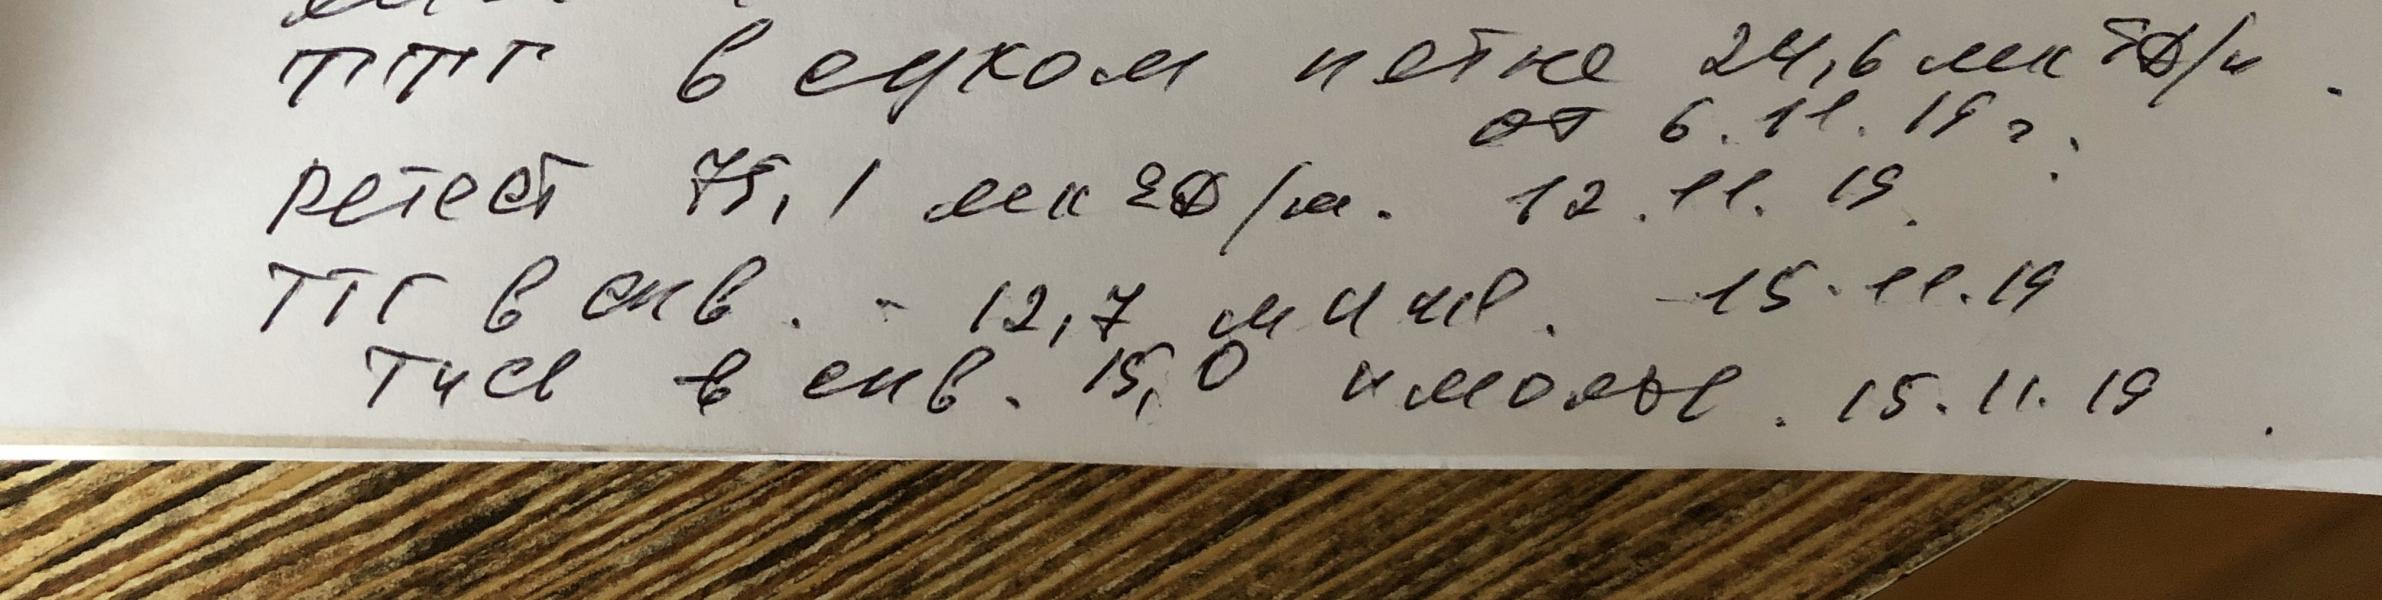 ТТГ в сухом пятне 24,6 мкЕД/м.
от 6.11.19 г.
ретест 75,1 мк ЕД/м. 12.11.19.
ТТГ в скв. - 12,7 - 15.11.19
Т4св в скв. 15,0 нмоль. 15.11.19.